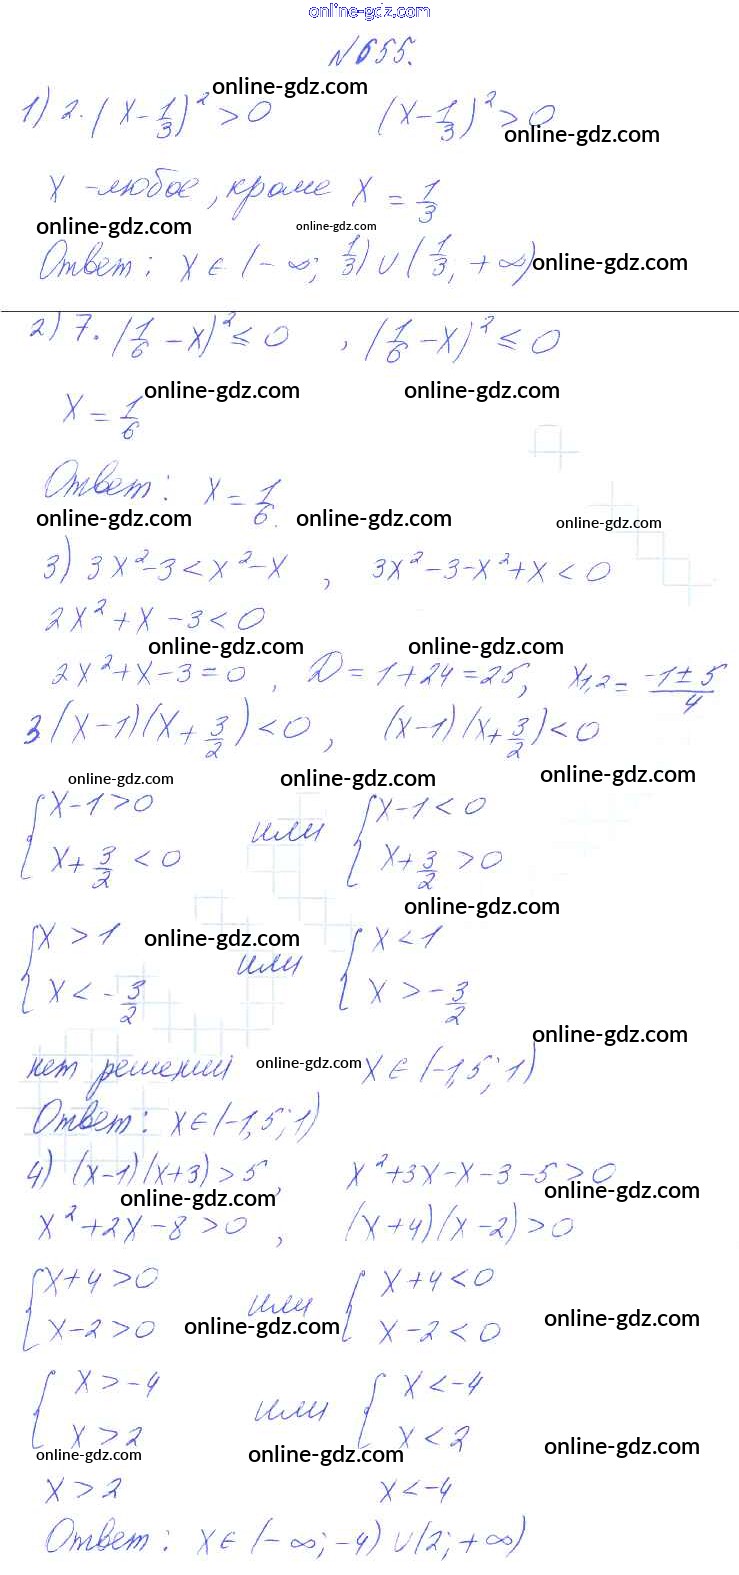 online-gdz.com
№655.
online-gdz.com
1) 2·(x-1/3)² > 0    (x-1/3)² > 0
online-gdz.com
x -любое, кроме x = 1/3
online-gdz.com online-gdz.com
Ответ: x∈(-∞; 1/3)∪(1/3; +∞) online-gdz.com
2) 7·(1/6 -x)² ≤ 0 , (1/6 -x)² ≤ 0
online-gdz.com online-gdz.com
x = 1/6
Ответ: x = 1/6.
online-gdz.com online-gdz.com online-gdz.com
3) 3x²-3 < x²-x , 3x²-3-x²+x < 0
2x²+x-3<0
online-gdz.com online-gdz.com
2x²+x-3=0 , D=1+24=25, x1,2 = (-1±5)/4
3(x-1)(x+3/2)<0 , (x-1)(x+3/2)<0
online-gdz.com online-gdz.com online-gdz.com
{ x-1>0 или { x-1<0
x+3/2 < 0    x+3/2 > 0
online-gdz.com
{ x >1 online-gdz.com или { x<1
x < -3/2    x > -3/2
online-gdz.com
нет решений online-gdz.com x∈(-1,5; 1)
Ответ: x∈(-1,5; 1)
4) (x-1)(x+3)>5 , x²+3x-x-3-5>0
online-gdz.com online-gdz.com
x²+2x-8>0 , (x+4)(x-2)>0
{ x+4>0 или { x+4<0
x-2>0 online-gdz.com x-2<0 online-gdz.com
{ x>-4 или { x<-4
x>2    x<2
online-gdz.com online-gdz.com online-gdz.com
x>2    x<-4
Ответ: x∈(-∞;-4)∪(2;+∞)